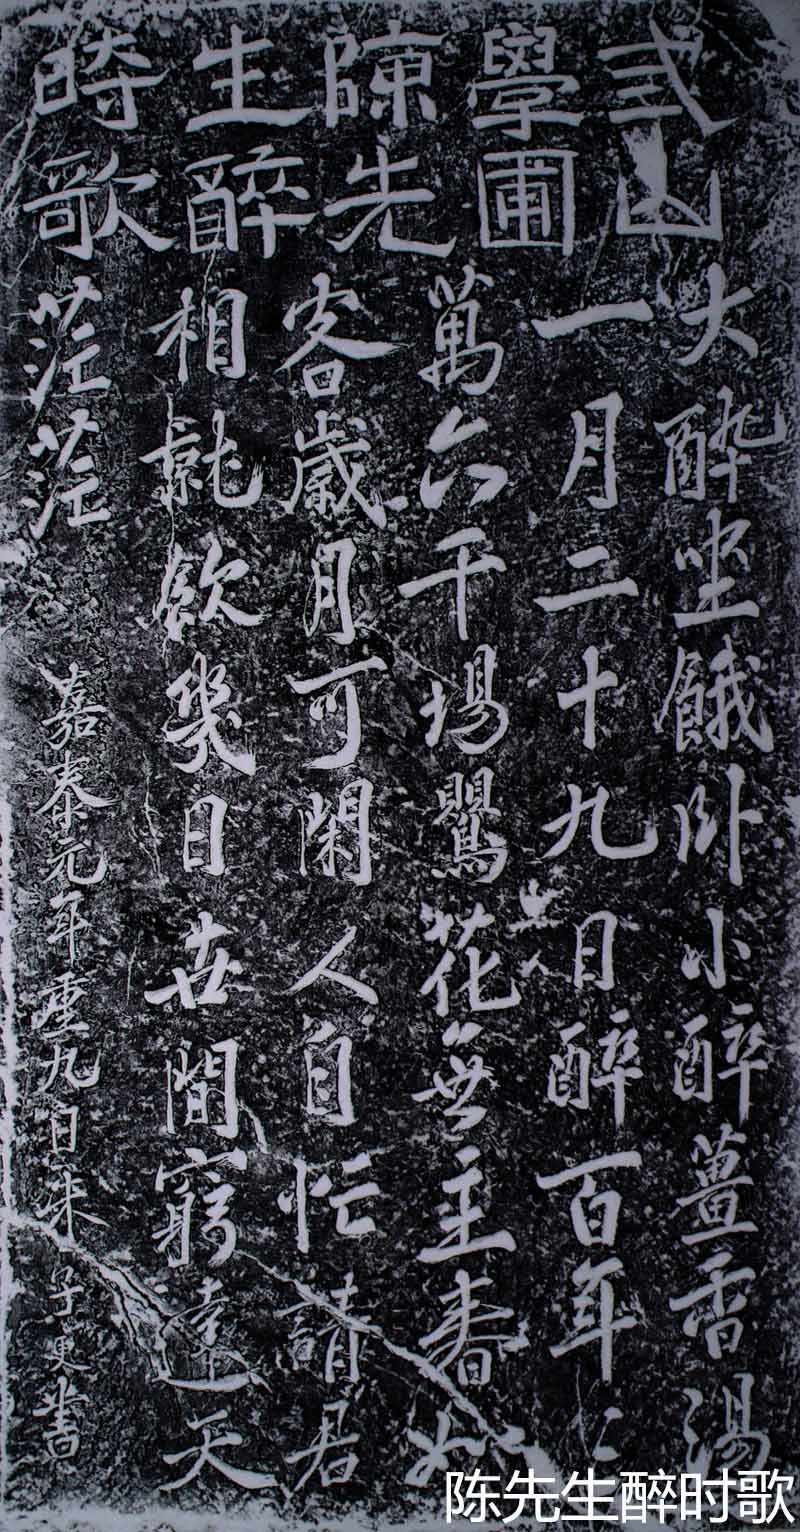 山
學圃
陳先
生醉
時歌
大酔坐餓卧小醉薑香湯
一月二十九日醉百年三
萬六千場鸎花無主春如
客歲月可閑人自忙請君
相就飲幾日世間窮達天
茫茫
嘉泰元年重九日 子 書
陈先生醉时歌